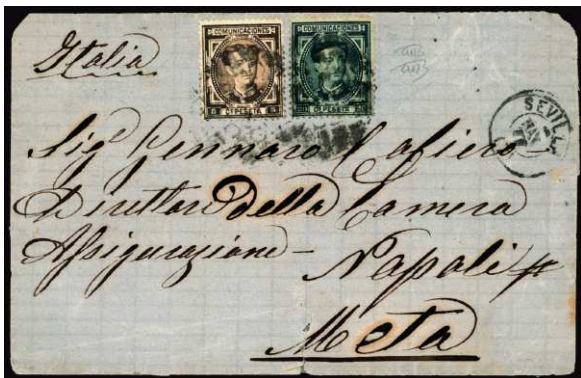 Italia
COMUNICACIONES COMUNICACIONES
CS PESETA CS PESETA
SEVILLA
Sigr Gennaro Cafiero
Direttore della Camera
Assigurazione –
Napoli
Meta